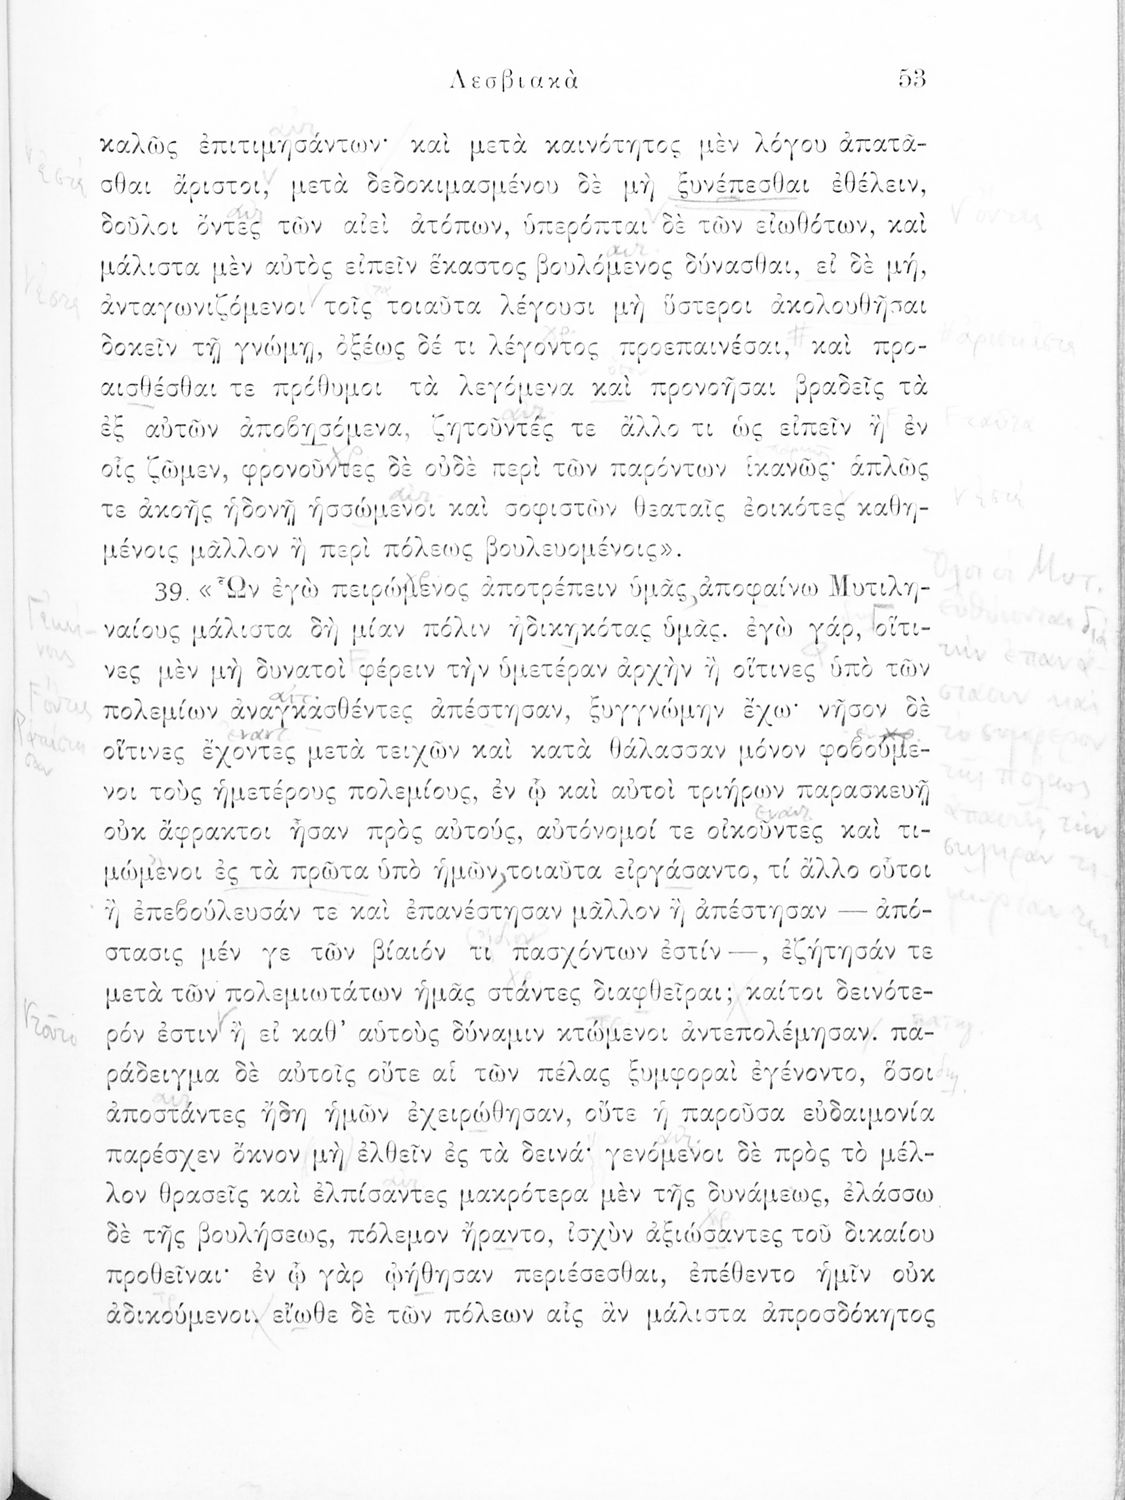 Λεσβιακὰ 53
καλῶς ἐπιτιμησάντων· καὶ μετὰ καινότητος μὲν λόγου ἀπατᾶ-
σθαι ἄριστοι, μετὰ δεδοκιμασμένου δὲ μὴ ξυνέπεσθαι ἐθέλειν,
δοῦλοι ὄντες τῶν αἰεὶ ἀτόπων, ὑπερόπται δὲ τῶν εἰωθότων, καὶ
μάλιστα μὲν αὐτὸς εἰπεῖν ἕκαστος βουλόμενος δύνασθαι, εἰ δὲ μή,
ἀνταγωνιζόμενοι τοῖς τοιαῦτα λέγουσι μὴ ὕστεροι ἀκολουθῆσαι
δοκεῖν τῇ γνώμῃ, ὀξέως δέ τι λέγοντος προεπαινέσαι, καὶ προ-
αισθέσθαι τε πρόθυμοι τὰ λεγόμενα καὶ προνοῆσαι βραδεῖς τὰ
ἐξ αὐτῶν ἀποβησόμενα, ζητοῦντές τε ἄλλο τι ὡς εἰπεῖν ἢ ἐν
οἷς ζῶμεν, φρονοῦντες δὲ οὐδὲ περὶ τῶν παρόντων ἱκανῶς· ἁπλῶς
τε ἀκοῆς ἡδονῇ ἡσσώμενοι καὶ σοφιστῶν θεαταῖς ἐοικότες καθη-
μένοις μᾶλλον ἢ περὶ πόλεως βουλευομένοις».
39. «Ὧν ἐγὼ πειρώμενος ἀποτρέπειν ὑμᾶς, ἀποφαίνω Μυτιλη-
ναίους μάλιστα δὴ μίαν πόλιν ἠδικηκότας ὑμᾶς. ἐγὼ γάρ, οἵτι-
νες μὲν μὴ δυνατοὶ φέρειν τὴν ὑμετέραν ἀρχὴν ἢ οἵτινες ὑπὸ τῶν
πολεμίων ἀναγκασθέντες ἀπέστησαν, ξυγγνώμην ἔχω· νῆσον δὲ
οἵτινες ἔχοντες μετὰ τειχῶν καὶ κατὰ θάλασσαν μόνον φοβούμε-
νοι τοὺς ἡμετέρους πολεμίους, ἐν ᾧ καὶ αὐτοὶ τριήρων παρασκευῇ
οὐκ ἄφρακτοι ἦσαν πρὸς αὐτούς, αὐτόνομοί τε οἰκοῦντες καὶ τι-
μώμενοι ἐς τὰ πρῶτα ὑπὸ ἡμῶν, τοιαῦτα εἰργάσαντο, τί ἄλλο οὗτοι
ἢ ἐπεβούλευσάν τε καὶ ἐπανέστησαν μᾶλλον ἢ ἀπέστησαν — ἀπό-
στασις μέν γε τῶν βίαιόν τι πασχόντων ἐστίν —, ἐζήτησάν τε
μετὰ τῶν πολεμιωτάτων ἡμᾶς στάντες διαφθεῖραι; καίτοι δεινότε-
ρόν ἐστιν ἢ εἰ καθ' αὑτοὺς δύναμιν κτώμενοι ἀντεπολέμησαν. πα-
ράδειγμα δὲ αὐτοῖς οὔτε αἱ τῶν πέλας ξυμφοραὶ ἐγένοντο, ὅσοι
ἀποστάντες ἤδη ἡμῶν ἐχειρώθησαν, οὔτε ἡ παροῦσα εὐδαιμονία
παρέσχεν ὄκνον μὴ ἐλθεῖν ἐς τὰ δεινά· γενόμενοι δὲ πρὸς τὸ μέλ-
λον θρασεῖς καὶ ἐλπίσαντες μακρότερα μὲν τῆς δυνάμεως, ἐλάσσω
δὲ τῆς βουλήσεως, πόλεμον ἤραντο, ἰσχὺν ἀξιώσαντες τοῦ δικαίου
προθεῖναι· ἐν ᾧ γὰρ ᾠήθησαν περιέσεσθαι, ἐπέθεντο ἡμῖν οὐκ
ἀδικούμενοι. εἴωθε δὲ τῶν πόλεων αἷς ἂν μάλιστα ἀπροσδόκητος